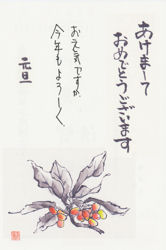 あけまして
おめでとうございます
お元気ですか
今年もよろしく
元旦